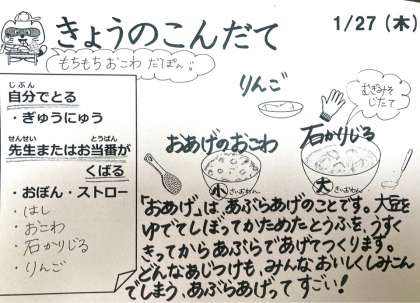 きょうのこんだて
1/27(木)
もちもちおこわだてぽん
りんご
むぎみそ
じたて
おあげのおこわ
石かりじる
小
大
じぶん
自分でとる
・ぎゅうにゅう
せんせい とうばん
先生またはお当番が
くばる
・おぼん・ストロー
・はし
・おこわ
・石かりじる
・りんご
「おあげ」は、あぶらあげのことです。大豆を
ゆでてしぼってかためたとうふを、うすく
きってからあぶらであげてつくります。
どんなあじつけも、みんなおいしくしみこん
でしまう、あぶらあげって すごい!